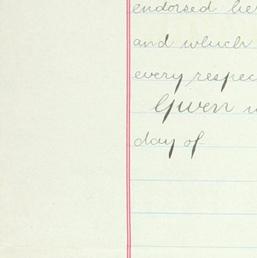 endorsed her
and which
every respec
Given u
day of